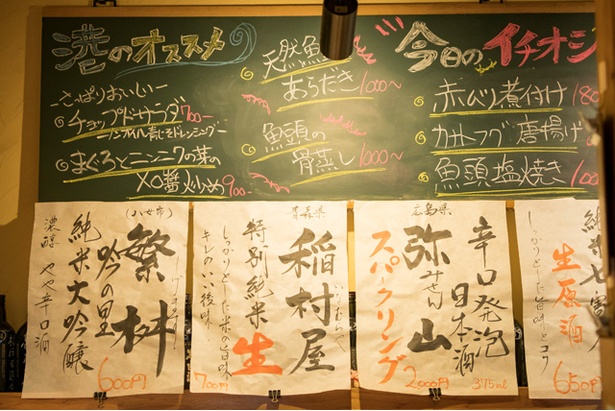 港のオススメ
-さっぱりおいしい-
チョップドサラダ 700-
ノンオイル青じそドレッシング-
まぐろとニンニクの芽の
XO醬炒め 900-
天然魚
あらだき 1000~
魚頭の
骨蒸し 1000~
今日のイチオシ
赤ムツ煮付け 180
カナトフグ唐揚げ
魚頭塩焼き 100
(八女市)
繁桝
吟の里
純米大吟醸
濃醇 やや辛口酒
600円
青森県
稲村屋
いなむらや
特別純米 生
しっかりとした米の旨味
キレのいい後味
700円
広島県
弥山
みせん
辛口発泡
日本酒
スパークリング
2000円 375ml
純米
生原酒
しっかりとした旨味とコク
650円